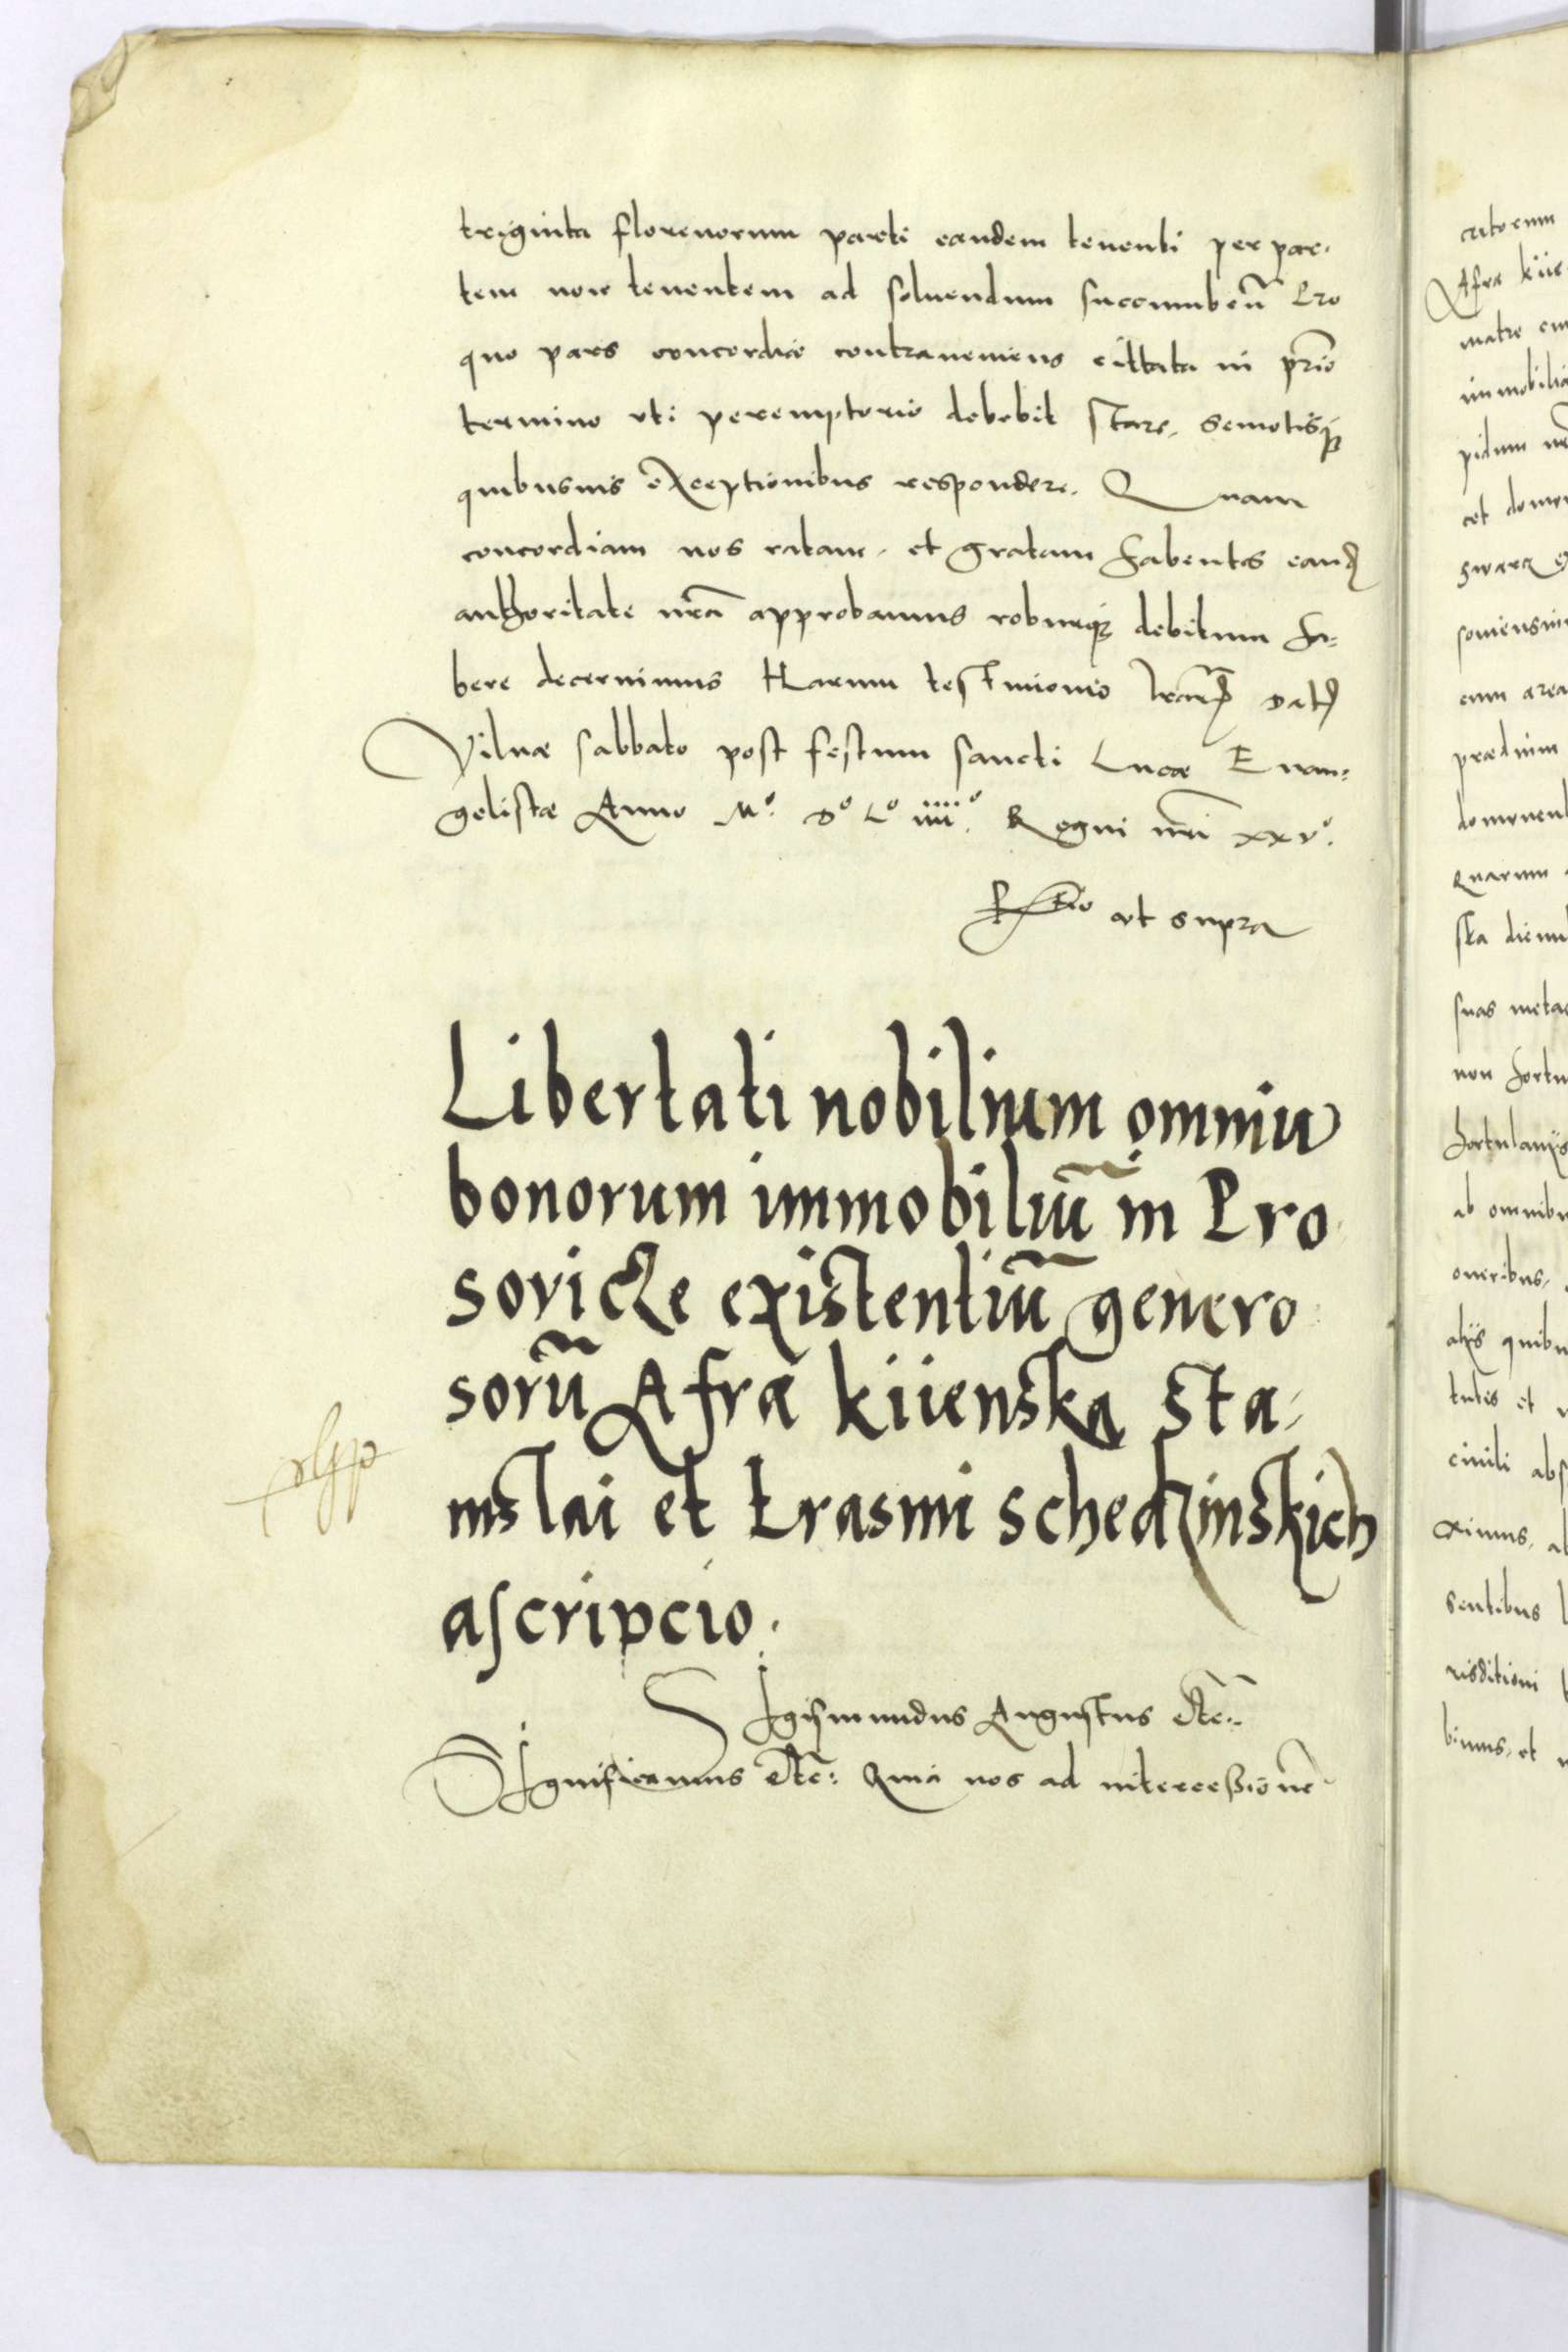 triginta florenorum parti eandem tenenti per par-
tem non tenentem ad soluendum succumbeñ Pro
quo pars concordie contraueniens cittata in prīo
termino vti peremptorio debebit stare, semotisqꝫ
quibusuis exceptionibus respondere. Quam
concordiam nos ratam, et gratam habentes eand
authoritate nrā approbamus roburqꝫ debitum ha-
bere decernimus Harum testimonio lrarū Dat
Vilnæ sabbato post festum sancti Lucæ Euan-
gelistæ Anno Mº. Dº Lº iiiiº. Regni nrī xxvº.
ut supra
Libertati nobilium omniu
bonorum immobiliū in Pro
sovicze existentiū genero
sorū Afræ kiienska Sta-
nislai et Erasmi Schedzinskich
ascripcio.
Sigismundus Augustus etc̄:
Significamus etc̄: Quia nos ad intercessionē
ritorum
Afræ kiie
matre
immobilia
pidum
et
swarz
cum area
prædium
Quarum
ska
suas metas
non hortu
hortulanis
ab omnibu
oneribus,
alijs quibu
et
ciuili abs
ximus,
sentibus
risditioni
bimus, et